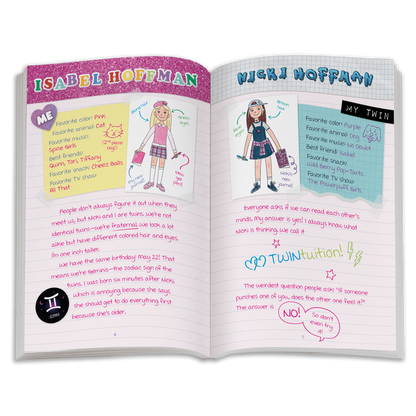 ISABEL HOFFMAN
ME
Favorite color: Pink
Favorite animal: Cat
Favorite music:
Spice Girls
Best friends:
Quinn, Tori, Tiffany
Favorite snack: Cheez Balls
Favorite TV show:
All That
People don't always figure it out when they
meet us, but Nicki and I are twins. We're not
identical twins—we're fraternal. We look a lot
alike but have different colored hair and eyes.
I'm one inch taller.
We have the same birthday: May 22! That
means we're Geminis—the zodiac sign of the
twins. I was born six minutes after Nicki,
which is annoying because she says
she should get to do everything first
because she's older.
NICKI HOFFMAN
MY TWIN
Favorite color: Purple
Favorite animal: Dog
Favorite music: No Doubt
Best friend:
Favorite snack:
Wild Berry Pop-Tarts
Favorite TV show:
The Powerpuff Girls
Everyone asks if we can read each other's
minds. My answer is yes! I always know what
Nicki is thinking. We call it
TWINtuition!
The weirdest question people ask: "If someone
punches one of you, does the other one feel it?"
The answer is
NO!
So don't
even try
it!